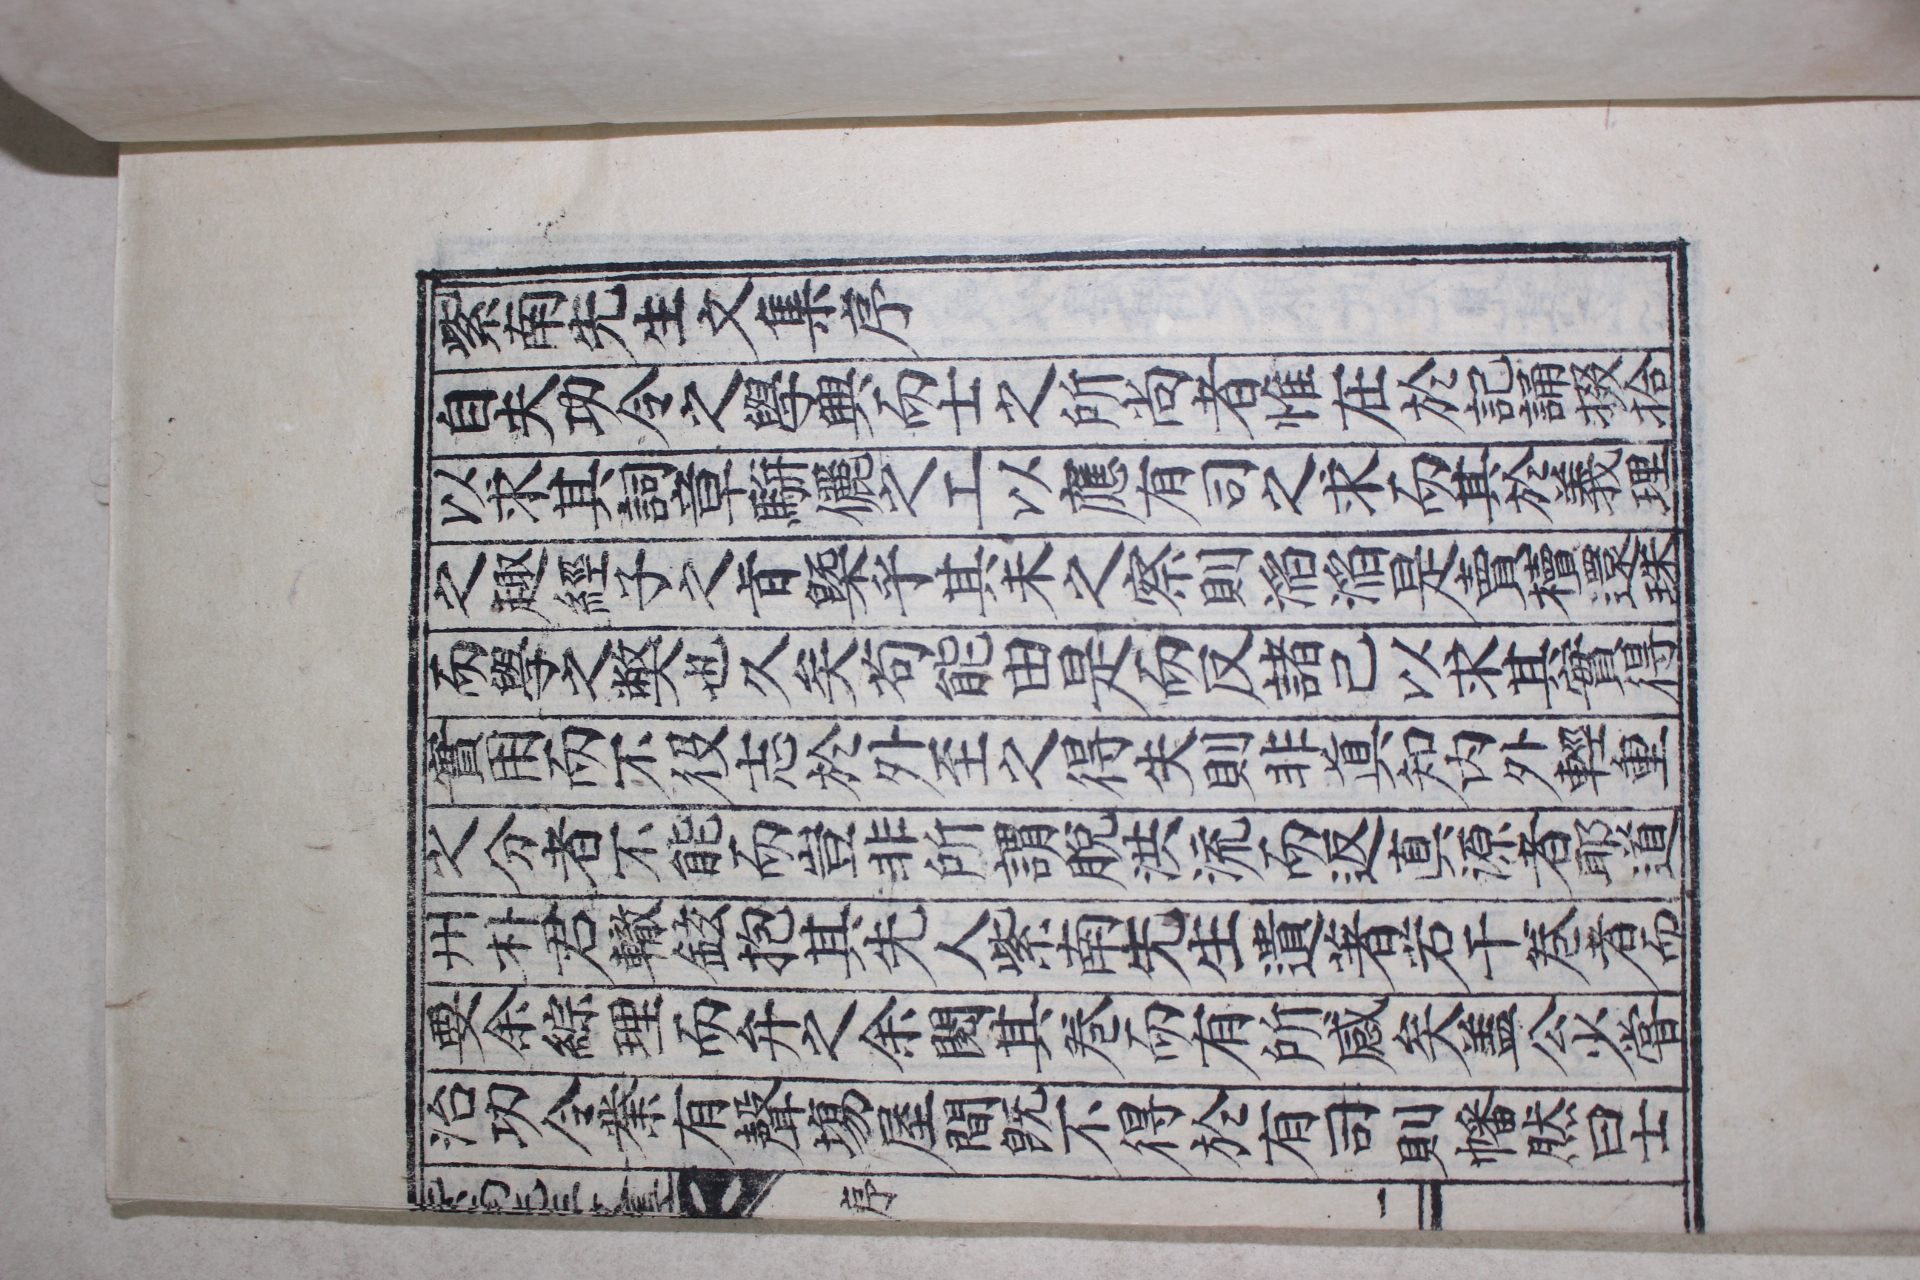 紫南先生文集序
自夫功令之學興而士之所尚者惟在於記誦掇拾
以求其詞章騈儷之工以應有司之求而其於義理
之趣經子之旨槩乎其未之察則滔滔是賣櫝還珠
而學之獘也久矣苟能由是而反諸己以求其實得
實用而不役志於外至之得失則非眞知內外輕重
之分者不能而豈非所謂脫洪流而返眞源者耶道
州朴君轍鉉抱其先人紫南先生遺著若干卷者而
要余綜理而弁之余閱其卷而有所感矣盖公少嘗
治功令業有聲塲屋間旣不得於有司則幡然曰士
紫南先生文集
序
一